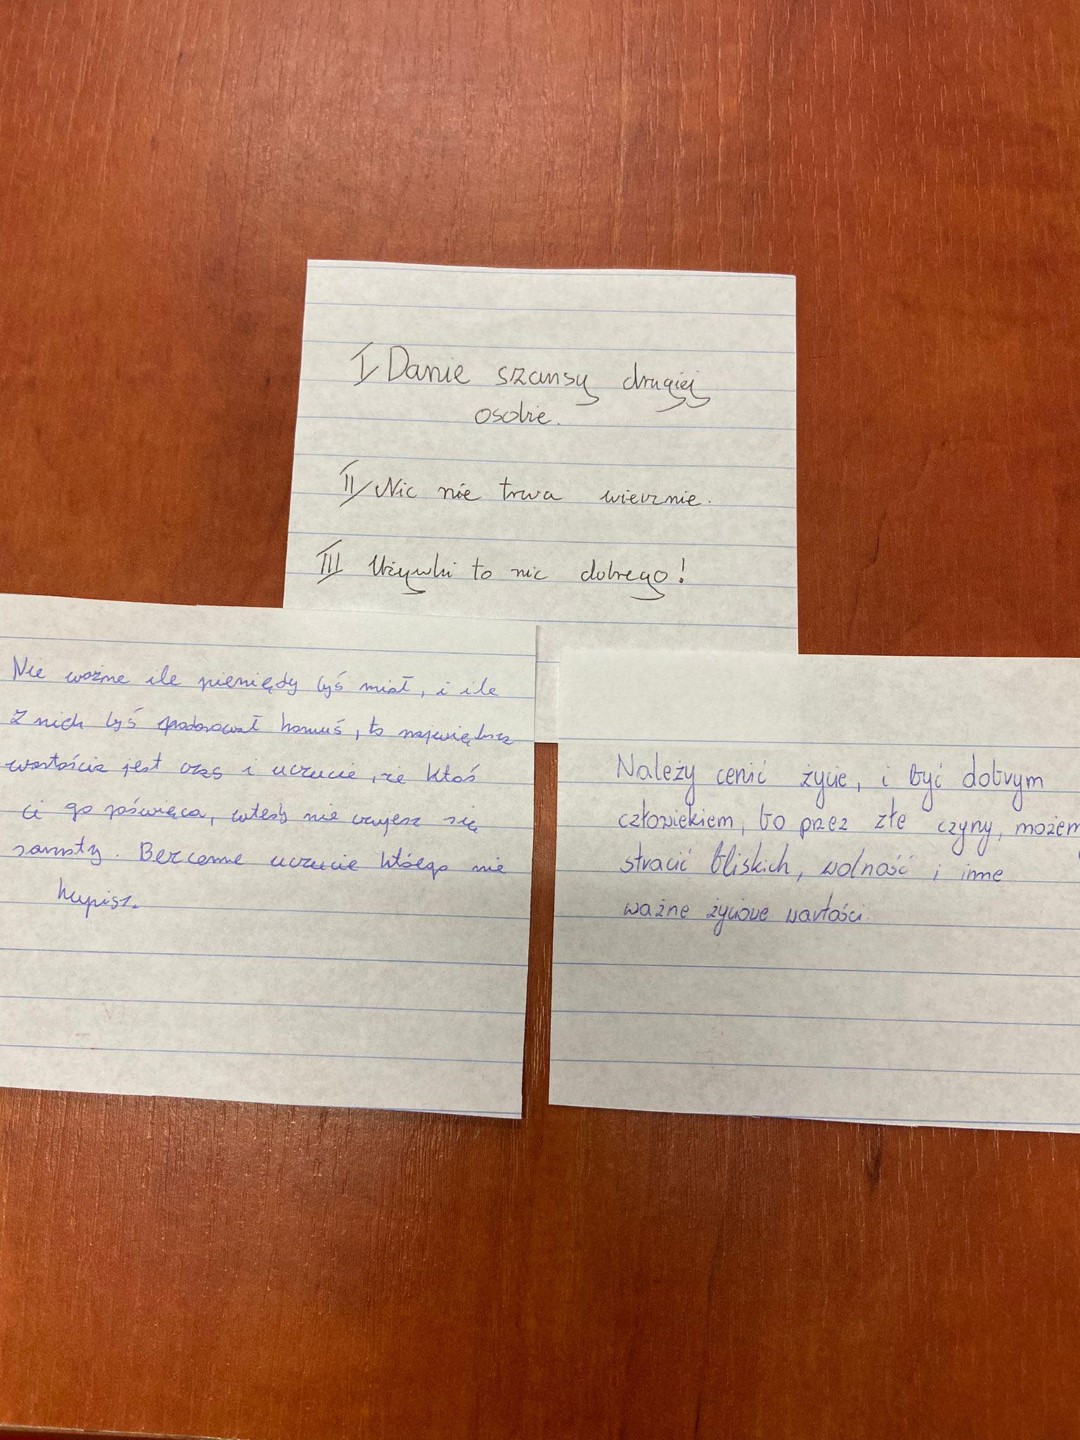 I/ Danie szansy drugiej
osobie.
II/ Nic nie trwa wiecznie.
III Używki to nic dobrego!
Nie ważne ile pieniędzy byś miał, i ile
z nich byś spodarował komuś, to największą
wartością jest czas i uczucie, że ktoś
ci go poświęca, wtedy nie czujesz się
samotny. Bezcenne uczucie którego nie
kupisz.
Należy cenić życie, i być dobrym
człowiekiem, bo przez złe czyny, możem
stracić bliskich, wolność i inne
ważne życiowe wartości.